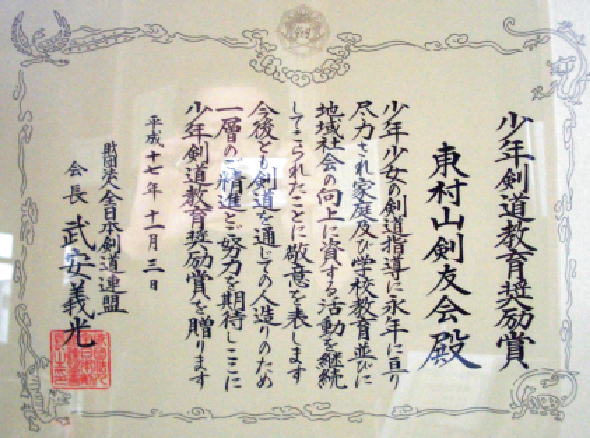 少年剣道教育奨励賞
東村山剣友会殿
少年少女の剣道指導に永年に亘り
尽力され家庭及び学校教育並びに
地域社会の向上に資する活動を継続
してこられたことに敬意を表します
今後とも剣道を通じての人造りのため
一層のご精進とご努力を期待しここに
少年剣道教育奨励賞を贈ります
平成十七年十一月三日
財団法人全日本剣道連盟
会長 武安義光